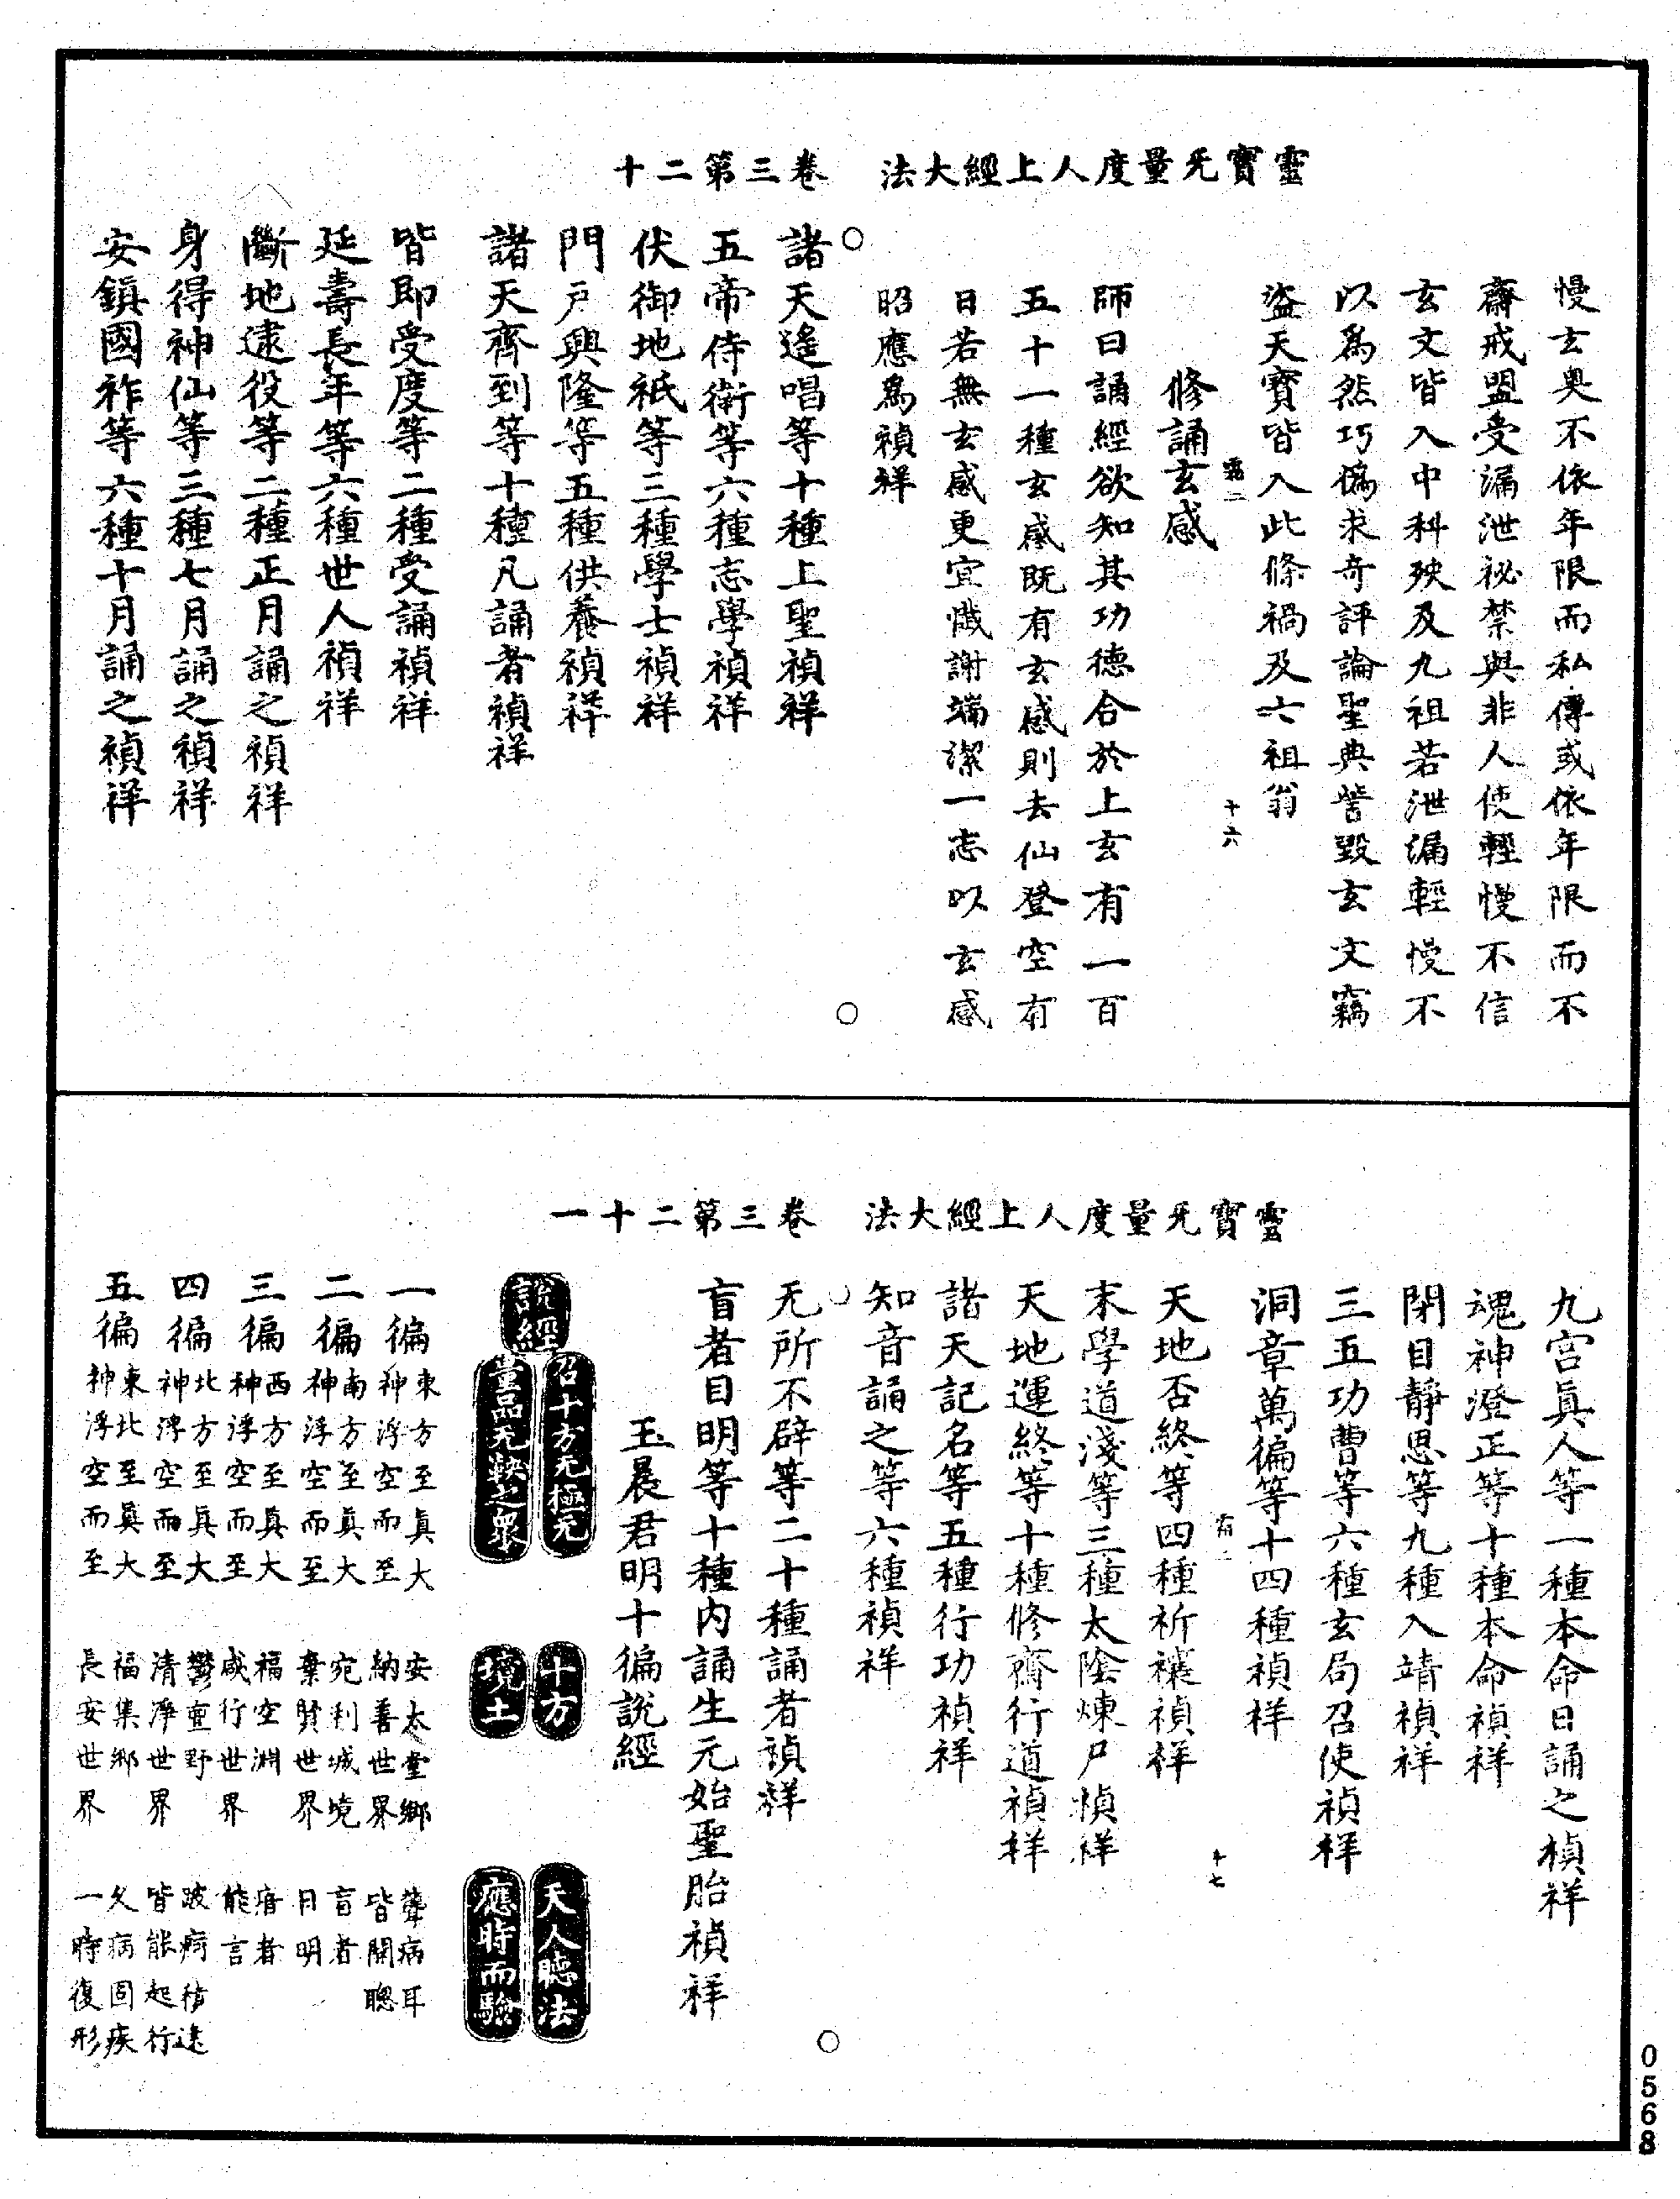 靈寶无量度人上經大法　卷三第二十
慢玄奥不依年限而私傳或依年限而不
齋戒盟受漏泄祕禁與非人使輕慢不信
玄文皆入中科殃及九祖若泄漏輕慢不
以爲然巧僞求奇評論聖典訾毀玄文竊
盜天寶皆入此條禍及六祖翁
十六
修誦玄感
師曰誦經欲知其功德合於上玄有一百
五十一種玄感既有玄感則去仙登空有
日若無玄感更宜懺謝端潔一志以玄感
昭應爲禎祥
諸天遙唱等十種上聖禎祥
五帝侍衛等六種志學禎祥
伏御地祇等三種學士禎祥
門戶興隆等五種供養禎祥
諸天齊到等十種凡誦者禎祥
皆即受度等二種受誦禎祥
延壽長年等六種世人禎祥
斷地逮役等二種正月誦之禎祥
身得神仙等三種七月誦之禎祥
安鎮國祚等六種十月誦之禎祥
靈寶无量度人上經大法　卷三第二十一
九宫眞人等一種本命日誦之禎祥
魂神澄正等十種本命禎祥
閉目靜思等九種入靖禎祥
三五功曹等六種玄局召使禎祥
洞章萬徧等十四種禎祥
十七
天地否終等四種祈禳禎祥
末學道淺等三種太陰煉尸禎祥
天地運終等十種修齋行道禎祥
諸天記名等五種行功禎祥
知音誦之等六種禎祥
无所不辟等二十種誦者禎祥
盲者目明等十種内誦生元始聖胎禎祥
玉晨君明十徧說經
說經
召十方无極无
量品无鞅之眾
十方
境土
天人聽法
應時而驗
一徧　東方至眞大
神浮空而至　安太堂鄉
納善世界　聾病耳
皆開聰
二徧　南方至眞大
神浮空而至　宛利城境
棄賢世界　盲者
目明
三徧　西方至眞大
神浮空而至　福空淵
咸行世界　瘖者
能言
四徧　北方至眞大
神浮空而至　鬱亶野
清淨世界　跛痾積逮
皆能起行
五徧　東北至眞大
神浮空而至　福集鄉
長安世界　久病固疾
一時復形
0568